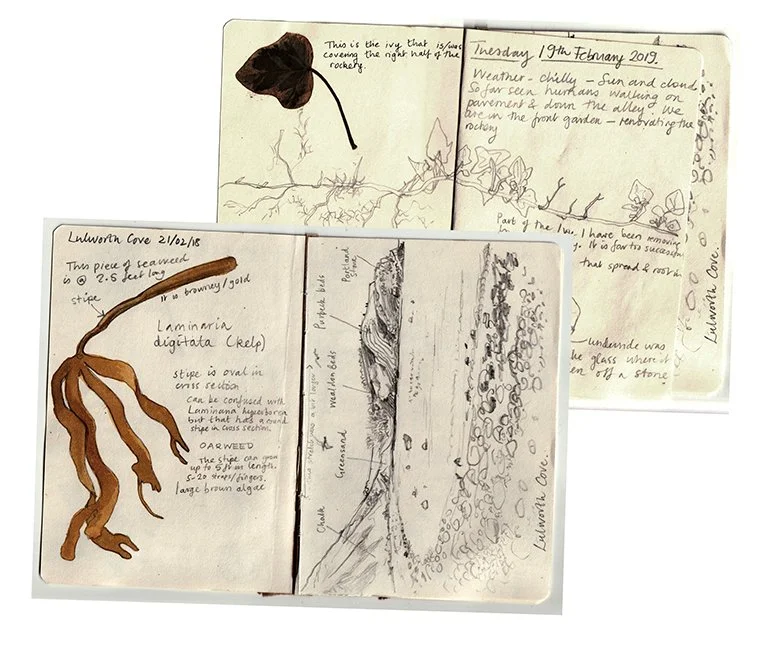 This is the ivy that is/was
covering the right half of the
rockery.
Tuesday 19th February 2019.
Weather - chilly - Sun and cloud.
So far seen humans walking on
pavement & down the alley. We
are in the front garden - renovating the
rockery
Part of the Ivy I have been removing
It is far too successful
that spread & root in
underside was
the glass where it
off a stone
Lulworth Cove.
Lulworth Cove 21/02/18
This piece of seaweed
is @ 2.5 feet long
stipe
It is browney/gold
Laminaria
digitata (kelp)
stipe is oval in
cross section
can be confused with
Laminaria hyperborea
but that has a round
stipe in cross section.
OARWEED
The stipe can grow
up to 5ft in length.
5-20 straps/fingers.
large brown algae
Portland
stone
Purbeck beds
Wealden Beds
Greensand
Chalk
Lulworth Cove.